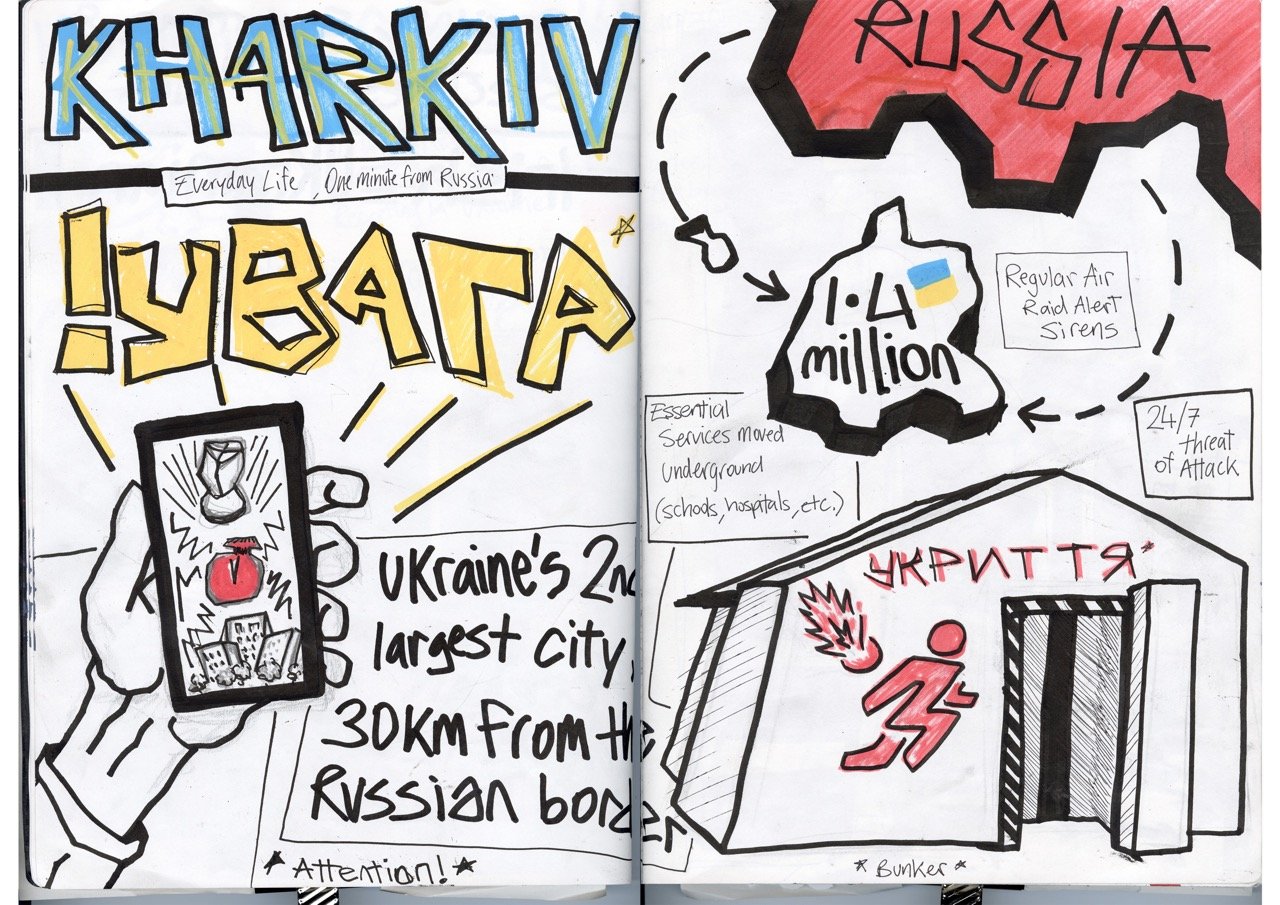 KHARKIV
Everyday Life, One minute from Russia.
!УВАГА*
Ukraine's 2nd
largest city,
30km from the
Russian border
*Attention!*
RUSSIA
1.4
million
Regular Air
Raid Alert
Sirens
Essential
Services moved
underground
(schools, hospitals, etc.)
24/7
threat
of Attack
УКРИТТЯ*
*Bunker*